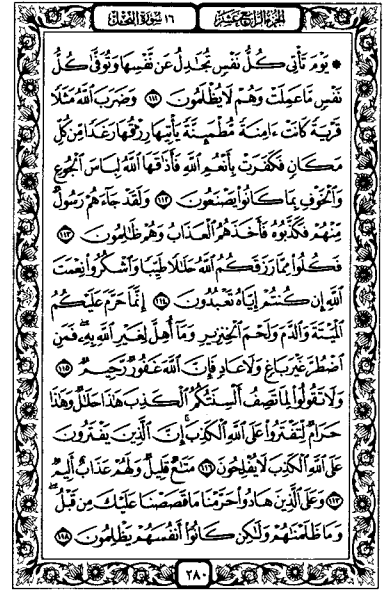 الجزء الرابع عشر ١٦ سورة النحل
۞ يَوْمَ تَأْتِى كُلُّ نَفْسٍ تُجَٰدِلُ عَن نَّفْسِهَا وَتُوَفَّىٰ كُلُّ
نَفْسٍ مَّا عَمِلَتْ وَهُمْ لَا يُظْلَمُونَ ١١١ وَضَرَبَ ٱللَّهُ مَثَلًا
قَرْيَةً كَانَتْ ءَامِنَةً مُّطْمَئِنَّةً يَأْتِيهَا رِزْقُهَا رَغَدًا مِّن كُلِّ
مَكَانٍ فَكَفَرَتْ بِأَنْعُمِ ٱللَّهِ فَأَذَٰقَهَا ٱللَّهُ لِبَاسَ ٱلْجُوعِ
وَٱلْخَوْفِ بِمَا كَانُوا۟ يَصْنَعُونَ ١١٢ وَلَقَدْ جَآءَهُمْ رَسُولٌ
مِّنْهُمْ فَكَذَّبُوهُ فَأَخَذَهُمُ ٱلْعَذَابُ وَهُمْ ظَٰلِمُونَ ١١٣
فَكُلُوا۟ مِمَّا رَزَقَكُمُ ٱللَّهُ حَلَٰلًا طَيِّبًا وَٱشْكُرُوا۟ نِعْمَتَ
ٱللَّهِ إِن كُنتُمْ إِيَّاهُ تَعْبُدُونَ ١١٤ إِنَّمَا حَرَّمَ عَلَيْكُمُ
ٱلْمَيْتَةَ وَٱلدَّمَ وَلَحْمَ ٱلْخِنزِيرِ وَمَآ أُهِلَّ لِغَيْرِ ٱللَّهِ بِهِۦ ۖ فَمَنِ
ٱضْطُرَّ غَيْرَ بَاغٍ وَلَا عَادٍ فَإِنَّ ٱللَّهَ غَفُورٌ رَّحِيمٌ ١١٥
وَلَا تَقُولُوا۟ لِمَا تَصِفُ أَلْسِنَتُكُمُ ٱلْكَذِبَ هَٰذَا حَلَٰلٌ وَهَٰذَا
حَرَامٌ لِّتَفْتَرُوا۟ عَلَى ٱللَّهِ ٱلْكَذِبَ ۚ إِنَّ ٱلَّذِينَ يَفْتَرُونَ
عَلَى ٱللَّهِ ٱلْكَذِبَ لَا يُفْلِحُونَ ١١٦ مَتَٰعٌ قَلِيلٌ وَلَهُمْ عَذَابٌ أَلِيمٌ
١١٧ وَعَلَى ٱلَّذِينَ هَادُوا۟ حَرَّمْنَا مَا قَصَصْنَا عَلَيْكَ مِن قَبْلُ ۖ
وَمَا ظَلَمْنَٰهُمْ وَلَٰكِن كَانُوٓا۟ أَنفُسَهُمْ يَظْلِمُونَ ١١٨
٢٨٠